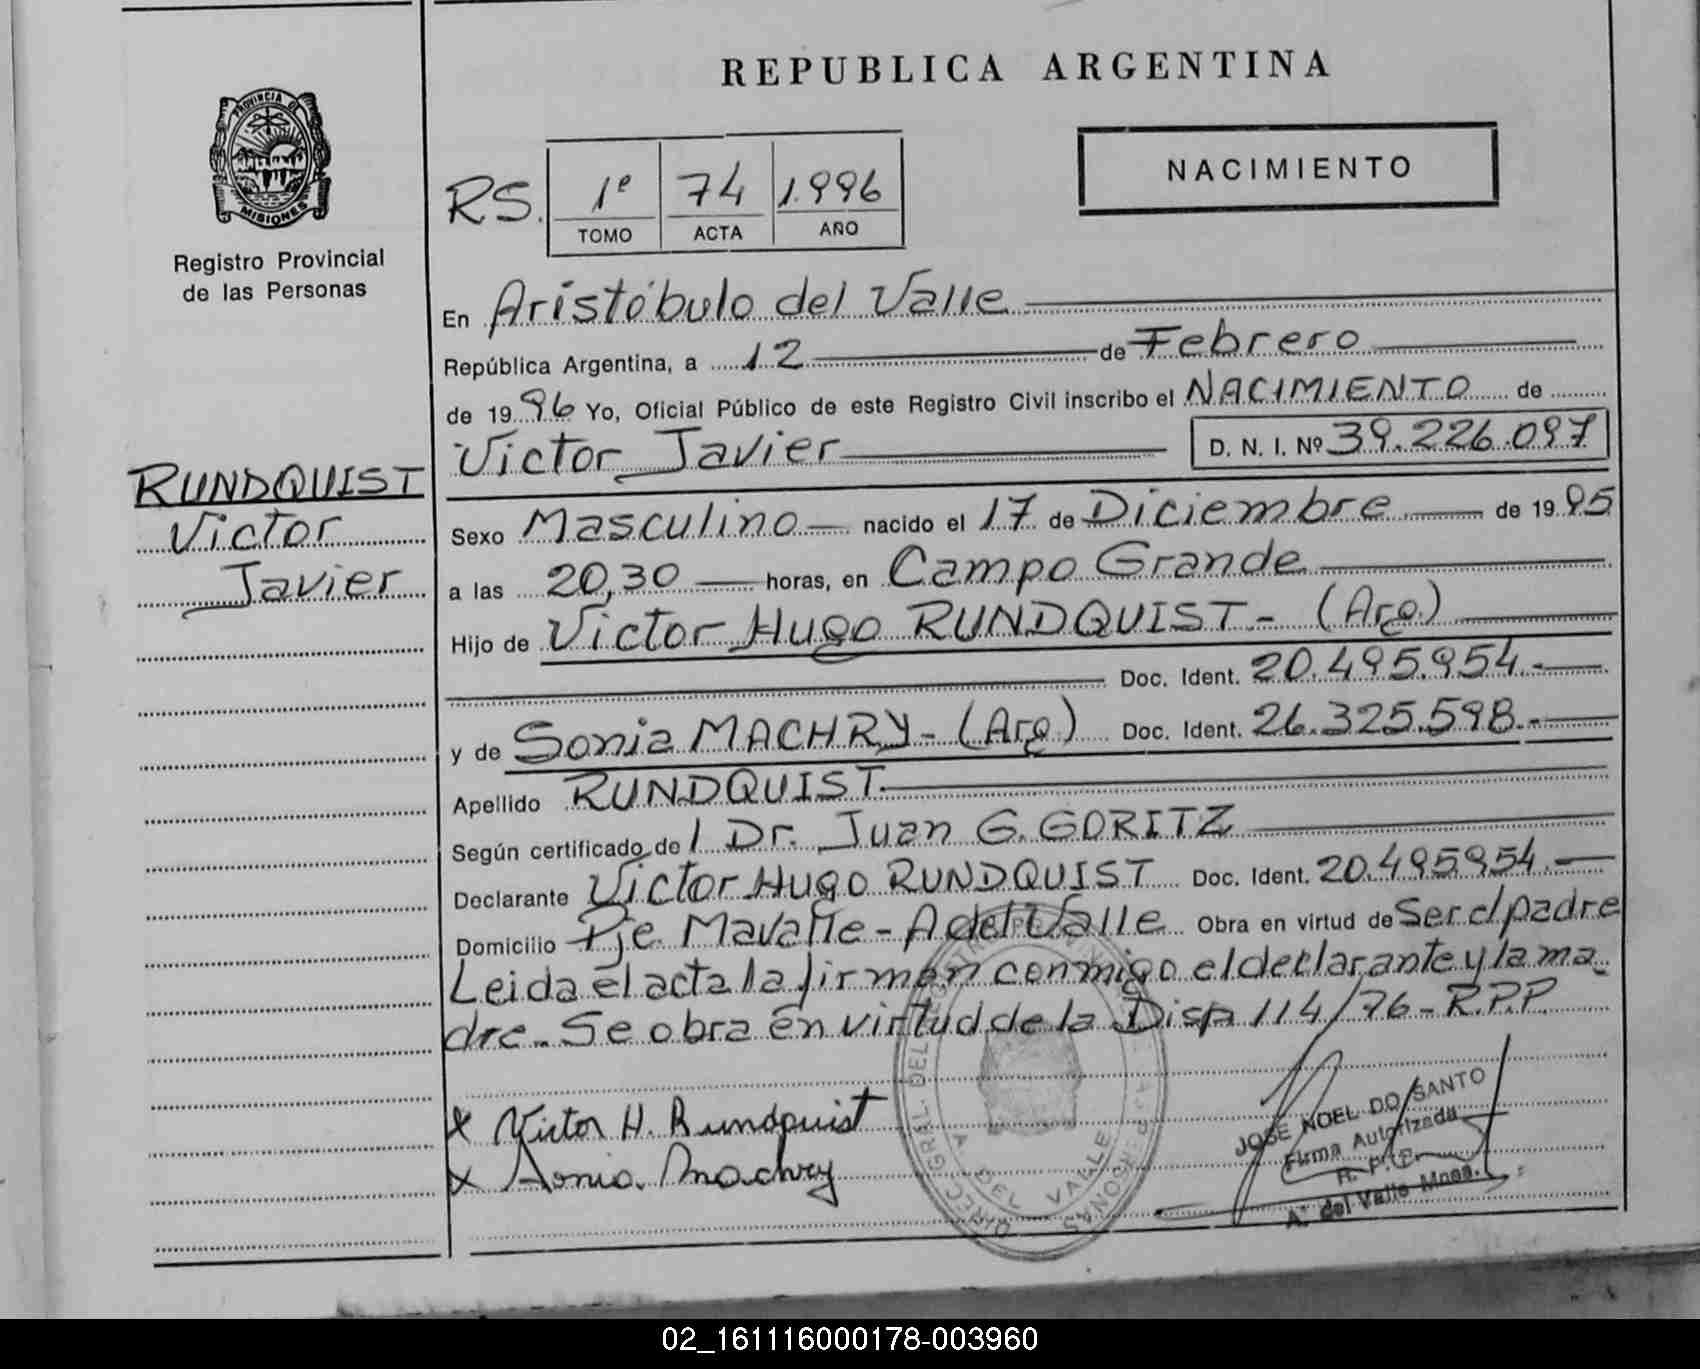 REPUBLICA ARGENTINA
PROVINCIA DE
MISIONES
Registro Provincial
de las Personas
NACIMIENTO
RS. 1º 74 1.996
TOMO ACTA AÑO
En Aristóbulo del Valle
República Argentina, a 12 de Febrero
de 19 96 Yo, Oficial Público de este Registro Civil inscribo el NACIMIENTO de
Victor Javier D. N. I. Nº 39.226.097
RUNDQUIST
Victor
Javier
Sexo Masculino nacido el 17 de Diciembre de 19 95
a las 20,30 horas, en Campo Grande
Hijo de Victor Hugo RUNDQUIST - (Arg.)
Doc. Ident. 20.495.954.-
y de Sonia MACHRY - (Arg) Doc. Ident. 26.325.598.-
Apellido RUNDQUIST.
Según certificado de l Dr. Juan G. GORITZ
Declarante Victor Hugo RUNDQUIST Doc. Ident. 20.495954.-
Domicilio Pje. Mavalle - A del Valle Obra en virtud de Ser el padre
Leida el acta la firman conmigo el declarante y la ma-
dre. Se obra en virtud de la Disp 114/76 - R.P.P.
x Victor H. Rundquist
x Sonia Machry
A DEL VALLE
JOSE NOEL DO SANTO
Firma Autorizada
R. P. P.
A. del Valle Mnes.
02_161116000178-003960